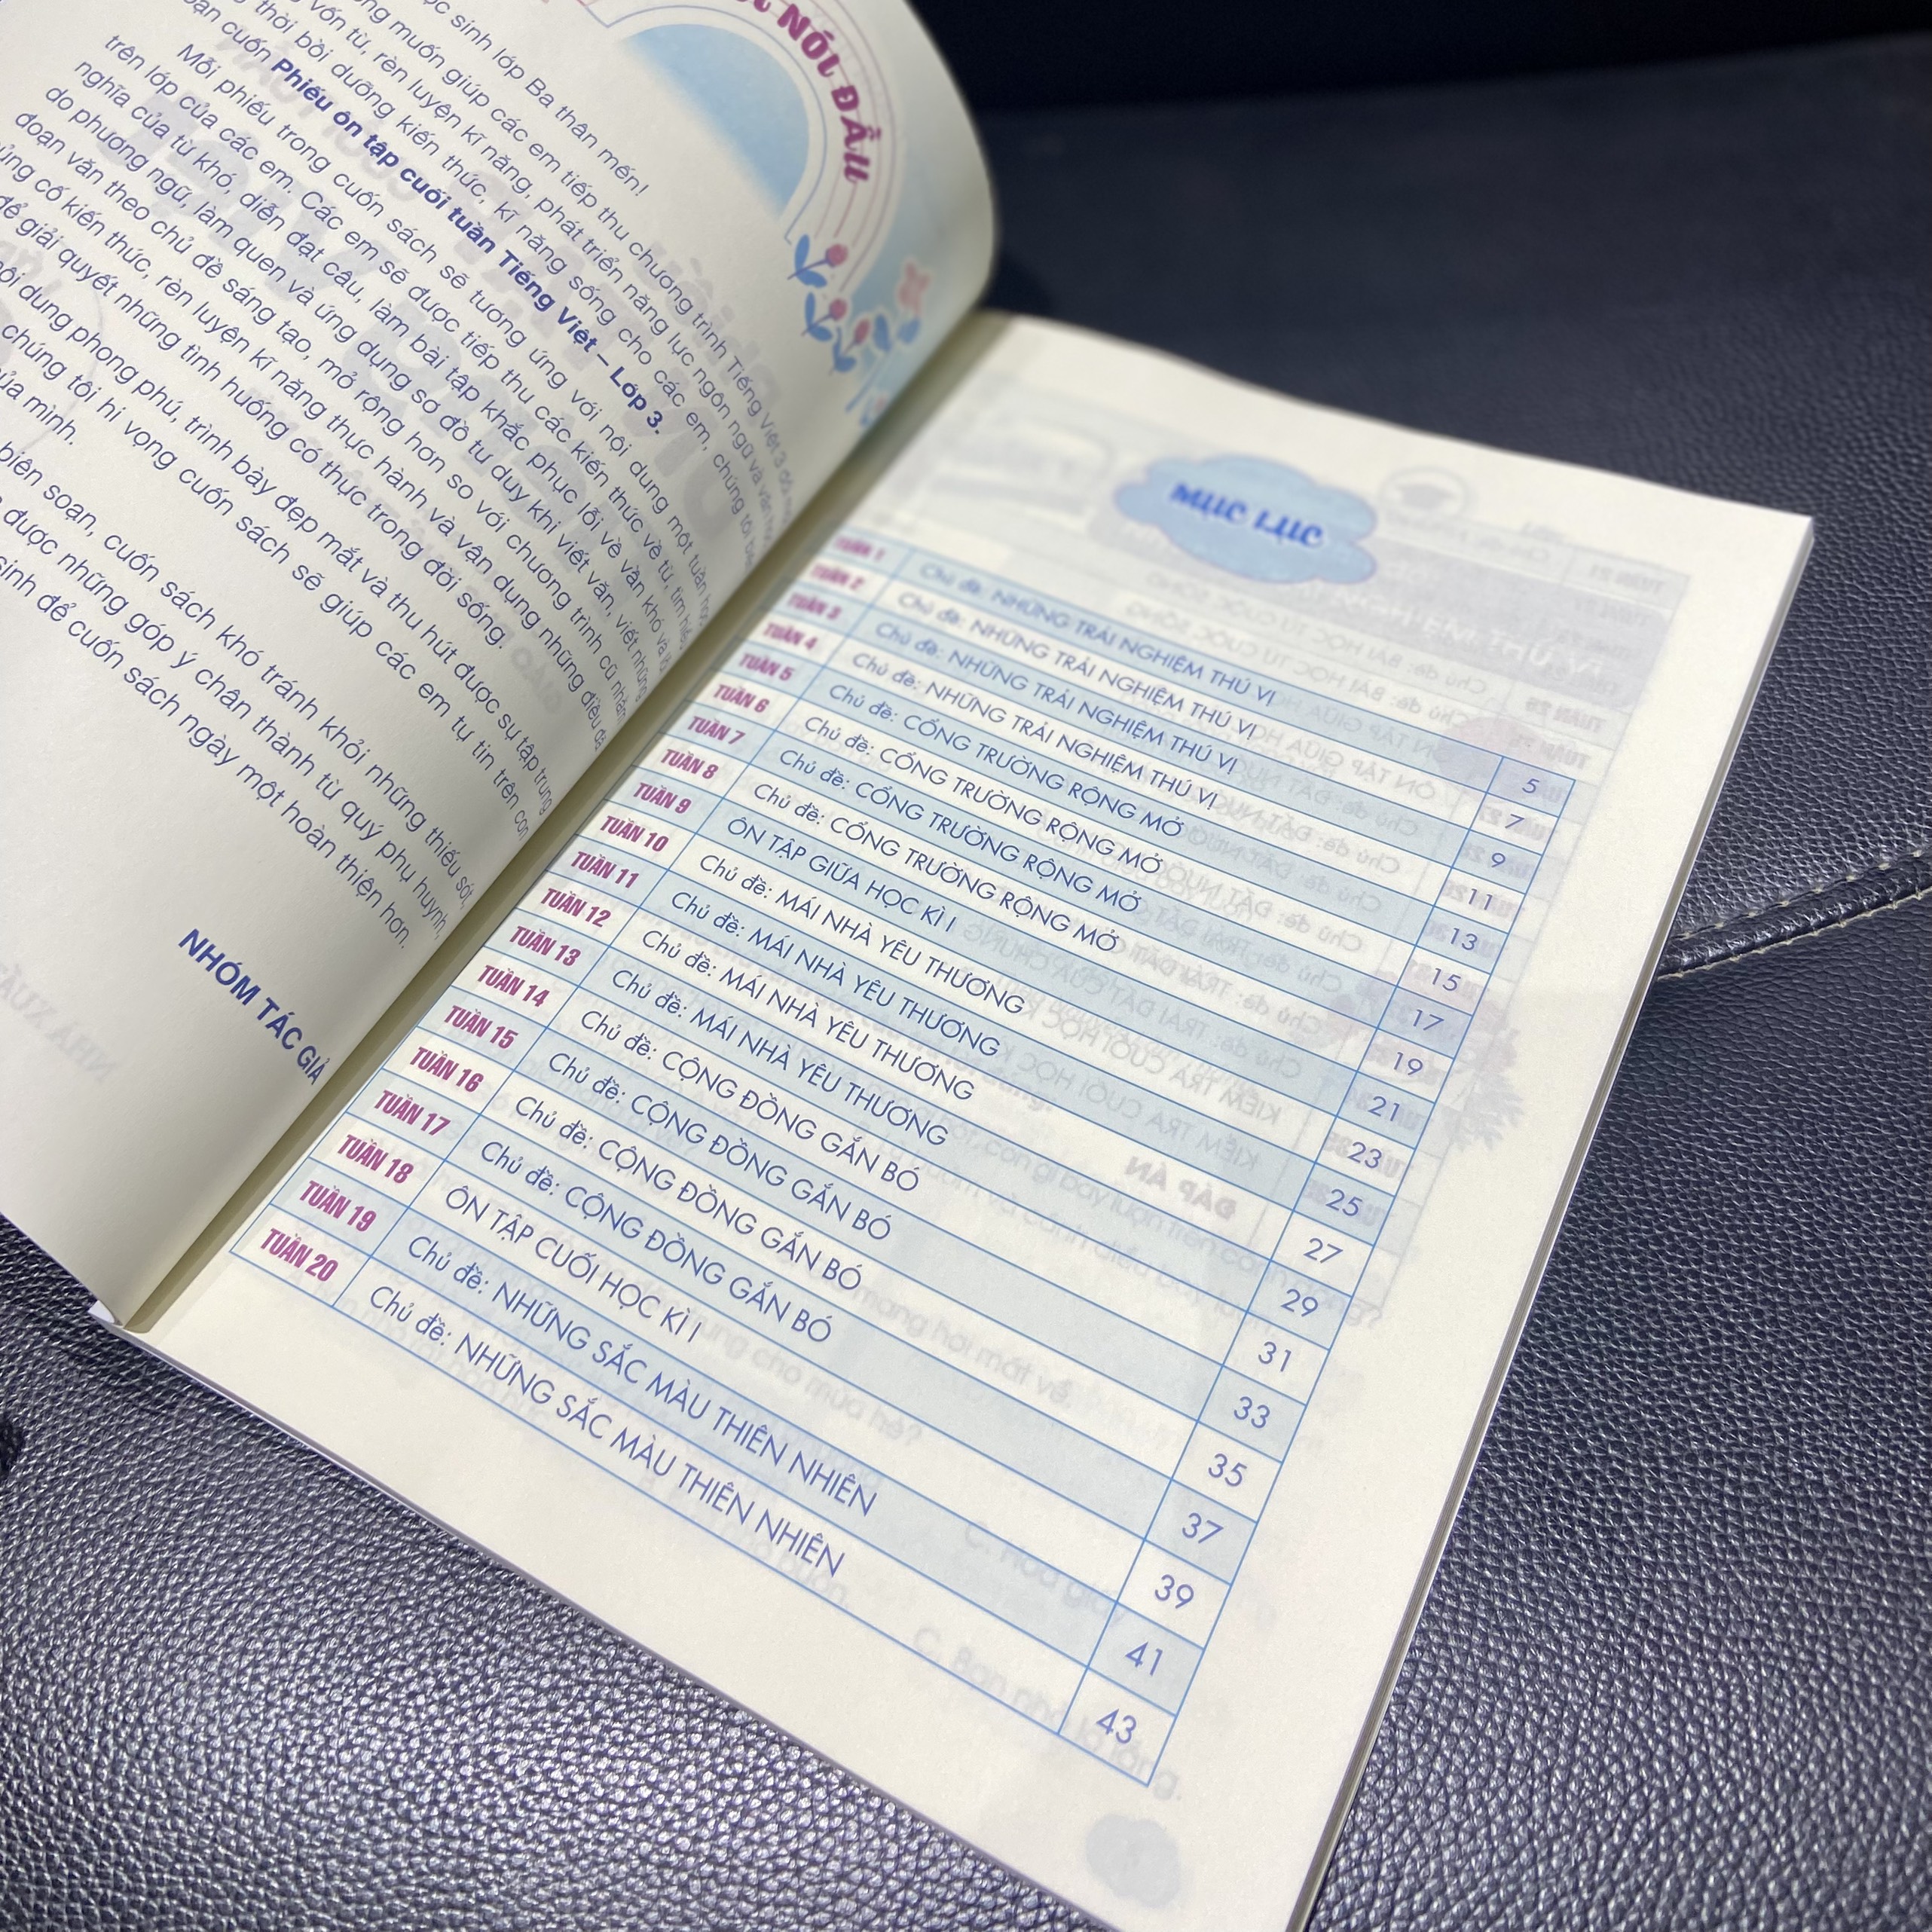 NÓI ĐẦU
học sinh lớp Ba thân mến!
muốn giúp các em tiếp thu chương trình Tiếng Việt 3
vốn từ, rèn luyện kĩ năng, phát triển năng lực ngôn ngữ và văn
thời bồi dưỡng kiến thức, kĩ năng sống cho các em, chúng tôi
cuốn Phiếu ôn tập cuối tuần Tiếng Việt – Lớp 3.
Mỗi phiếu trong cuốn sách sẽ tương ứng với nội dung một tuần học
trên lớp của các em. Các em sẽ được tiếp thu các kiến thức về từ, tìm hiểu
nghĩa của từ khó, diễn đạt câu, làm bài tập khắc phục lỗi về vần khó và lỗi
do phương ngữ, làm quen và ứng dụng sơ đồ tư duy khi viết văn, viết những
đoạn văn theo chủ đề sáng tạo, mở rộng hơn so với chương trình cũ nhằm
củng cố kiến thức, rèn luyện kĩ năng thực hành và vận dụng những điều đã
để giải quyết những tình huống có thực trong đời sống.
nội dung phong phú, trình bày đẹp mắt và thu hút được sự tập trung
chúng tôi hi vọng cuốn sách sẽ giúp các em tự tin trên con
của mình.
biên soạn, cuốn sách khó tránh khỏi những thiếu sót,
được những góp ý chân thành từ quý phụ huynh,
sinh để cuốn sách ngày một hoàn thiện hơn.
NHÓM TÁC GIẢ
MỤC LỤC
TUẦN 1 Chủ đề: NHỮNG TRẢI NGHIỆM THÚ VỊ 5
TUẦN 2 Chủ đề: NHỮNG TRẢI NGHIỆM THÚ VỊ 7
TUẦN 3 Chủ đề: NHỮNG TRẢI NGHIỆM THÚ VỊ 9
TUẦN 4 Chủ đề: NHỮNG TRẢI NGHIỆM THÚ VỊ 11
TUẦN 5 Chủ đề: CỔNG TRƯỜNG RỘNG MỞ 13
TUẦN 6 Chủ đề: CỔNG TRƯỜNG RỘNG MỞ 15
TUẦN 7 Chủ đề: CỔNG TRƯỜNG RỘNG MỞ 17
TUẦN 8 Chủ đề: CỔNG TRƯỜNG RỘNG MỞ 19
TUẦN 9 ÔN TẬP GIỮA HỌC KÌ I 21
TUẦN 10 Chủ đề: MÁI NHÀ YÊU THƯƠNG 23
TUẦN 11 Chủ đề: MÁI NHÀ YÊU THƯƠNG 25
TUẦN 12 Chủ đề: MÁI NHÀ YÊU THƯƠNG 27
TUẦN 13 Chủ đề: MÁI NHÀ YÊU THƯƠNG 29
TUẦN 14 Chủ đề: CỘNG ĐỒNG GẮN BÓ 31
TUẦN 15 Chủ đề: CỘNG ĐỒNG GẮN BÓ 33
TUẦN 16 Chủ đề: CỘNG ĐỒNG GẮN BÓ 35
TUẦN 17 Chủ đề: CỘNG ĐỒNG GẮN BÓ 37
TUẦN 18 ÔN TẬP CUỐI HỌC KÌ I 39
TUẦN 19 Chủ đề: NHỮNG SẮC MÀU THIÊN NHIÊN 41
TUẦN 20 Chủ đề: NHỮNG SẮC MÀU THIÊN NHIÊN 43